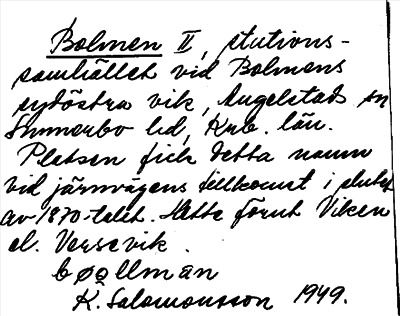 Bolmen II, stations-
samhället vid Bolmens
sydöstra vik, Angelstads sn
Sunnerbo hd, Krb. län.
Platsen fick detta namn
vid järnvägens tillkomst i slutet
av 1870-talet. Hette förut Viken
el. Versevik.
allman
K. Salomonsson 1949.